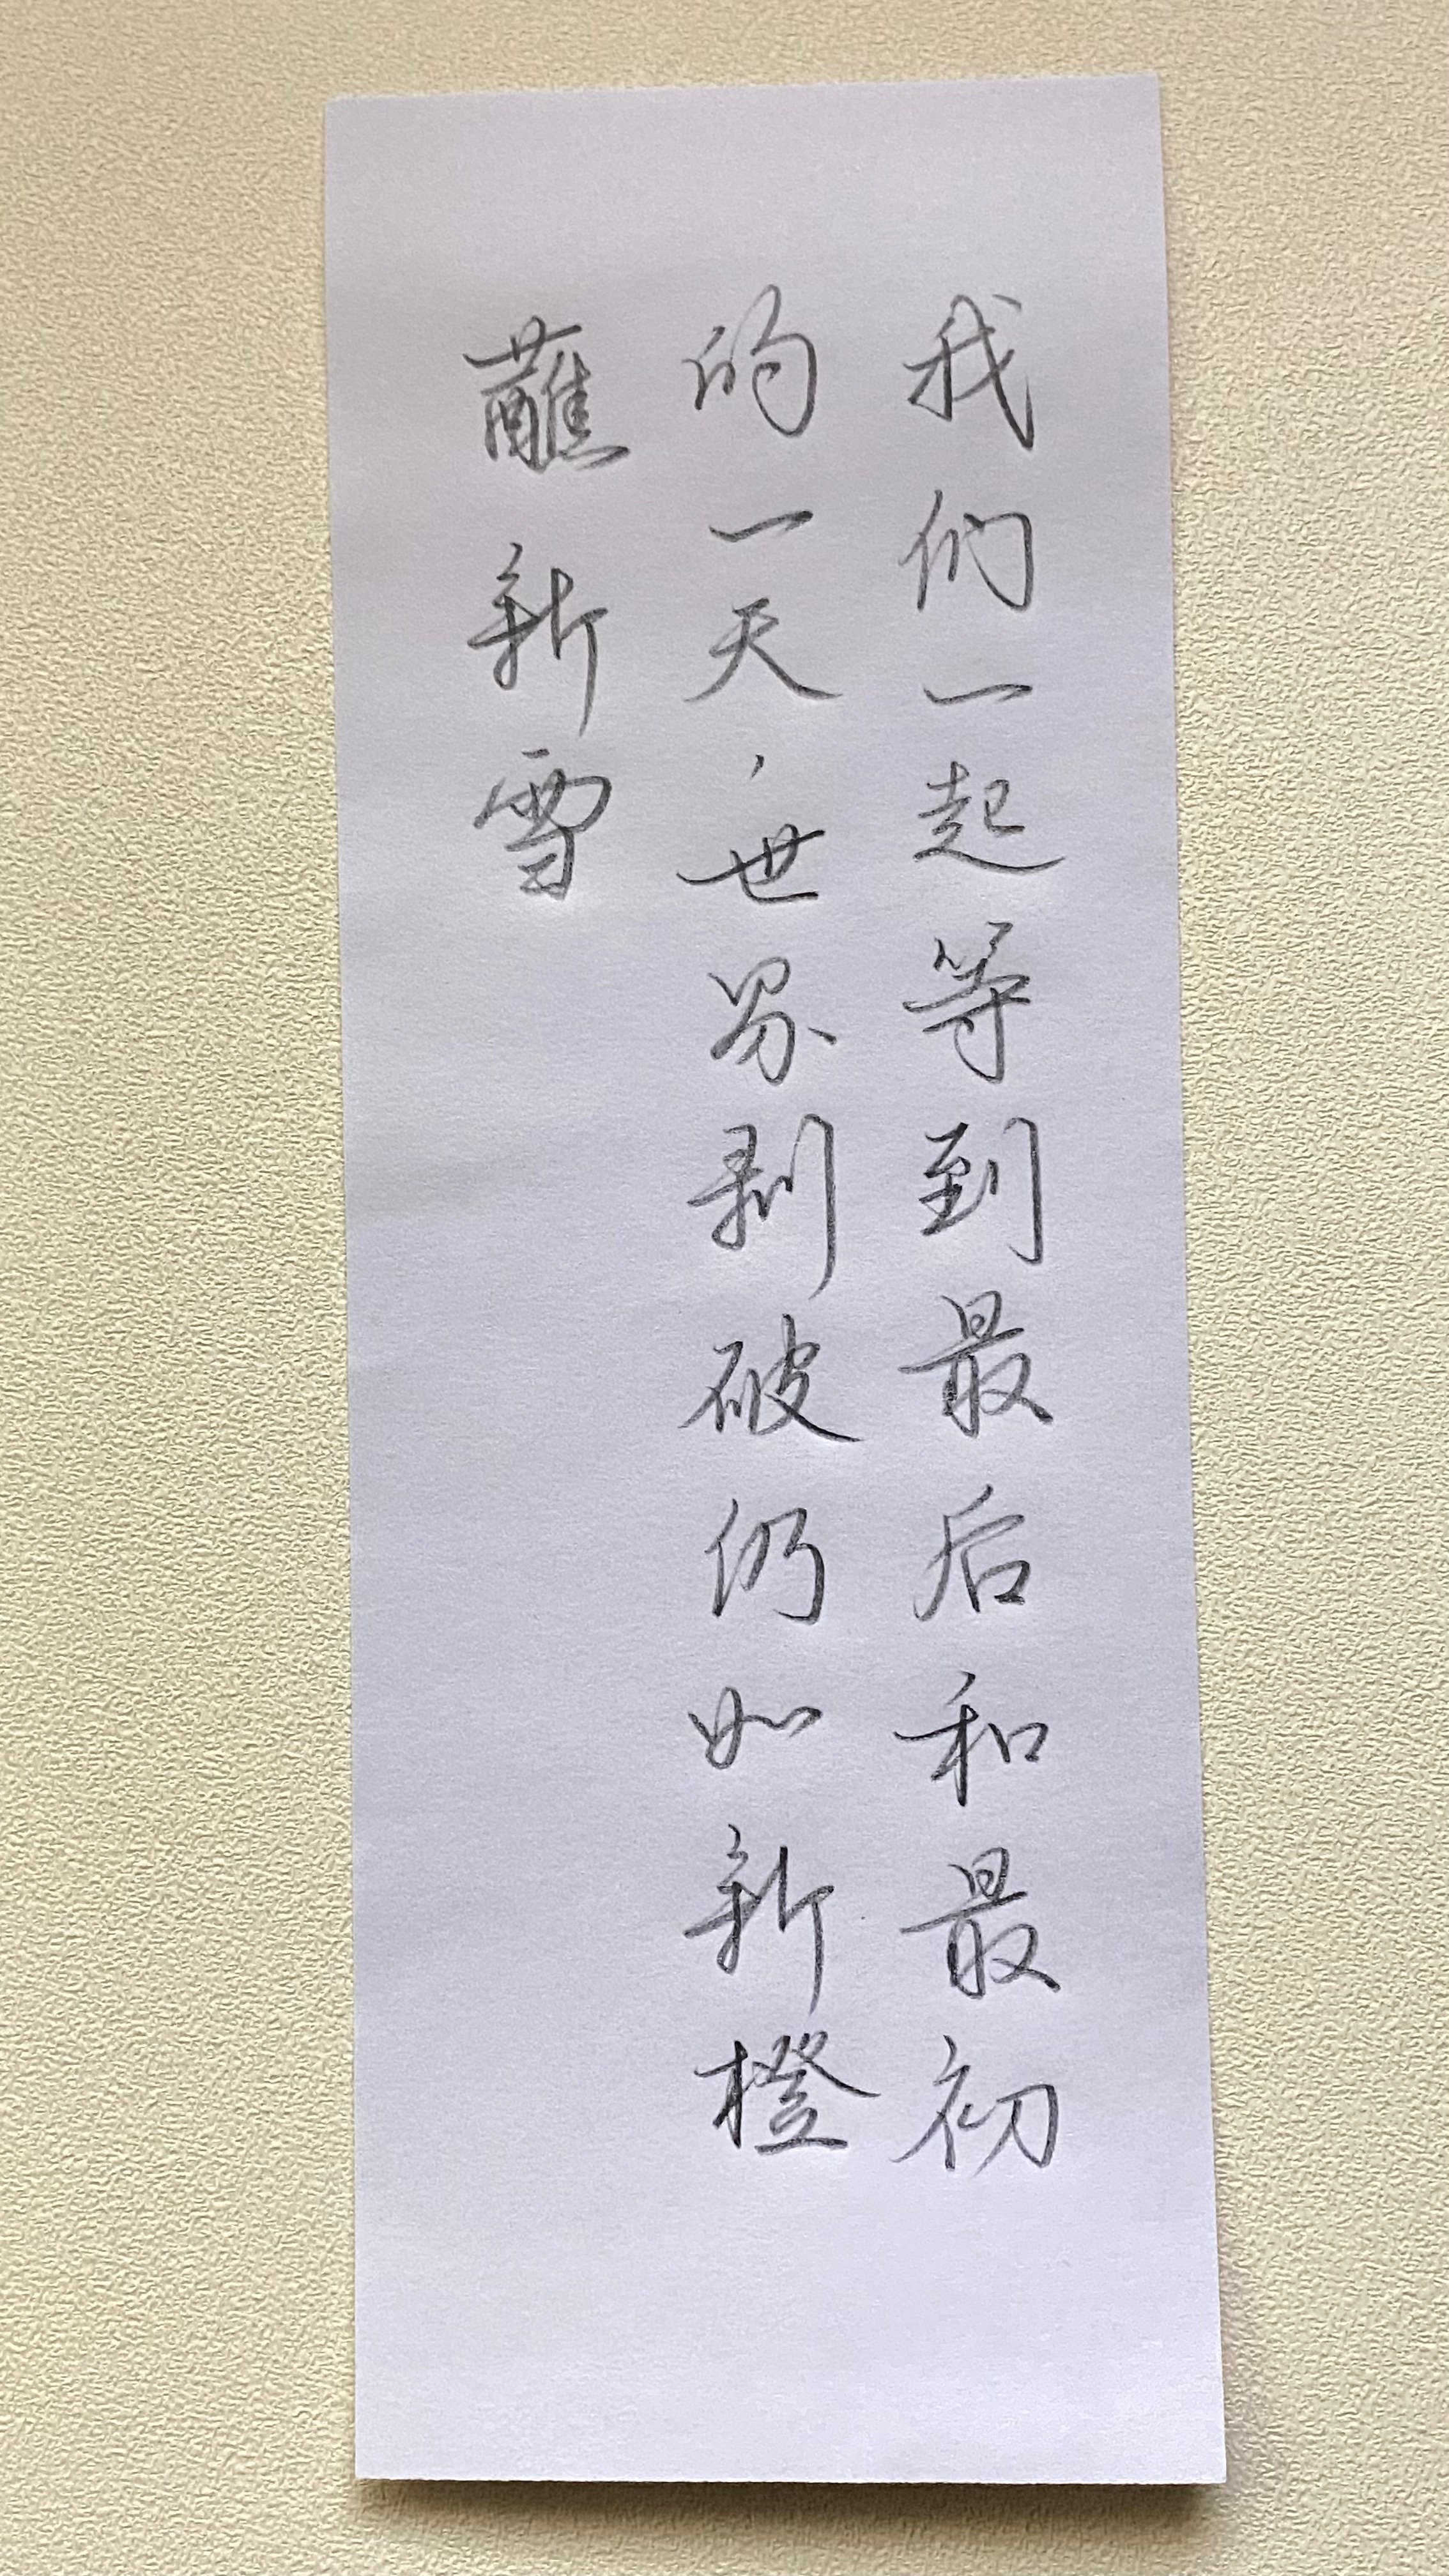 我们一起等到最后和最初
的一天，世界剥破仍如新橙
蘸新雪